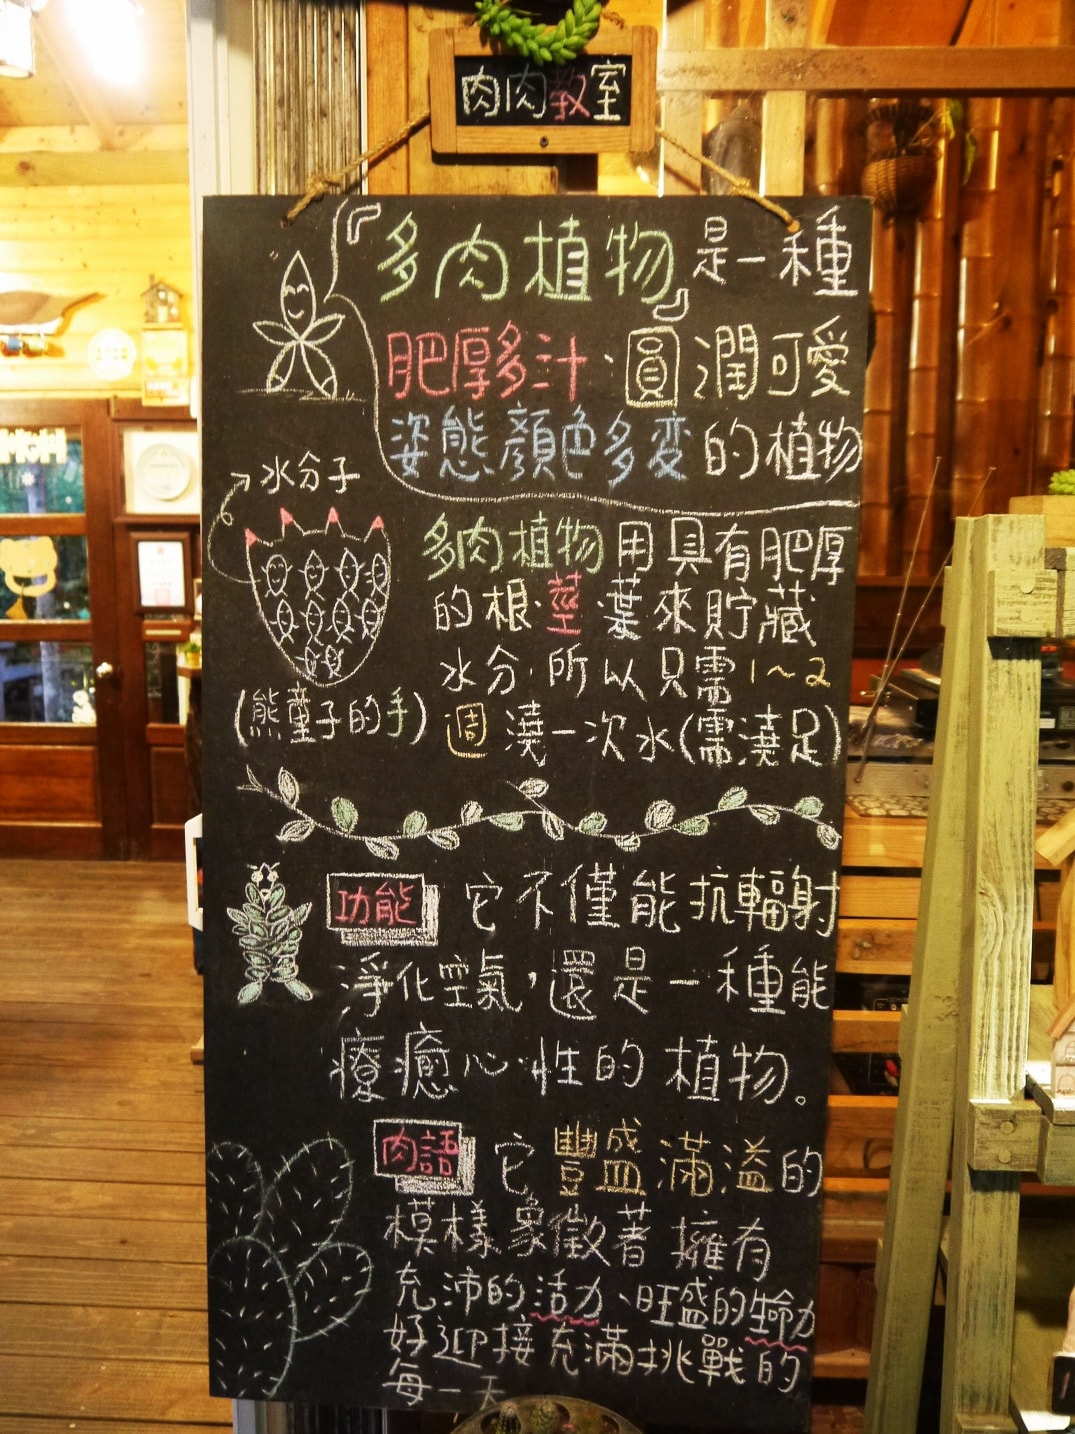 肉肉教室
「多肉植物」是一種
肥厚多汁、圓潤可愛
姿態顏色多變的植物
水分子
多肉植物用具有肥厚
的根·莖·葉來貯藏
水分,所以只需1~2
週澆一次水(需澆足)
(熊童子的手)
功能 它不僅能抗輻射
淨化空氣,還是一種能
療癒心性的植物。
肉語 它豐盛滿溢的
模樣象徵著擁有
充沛的活力、旺盛的生命力
好迎接充滿挑戰的
每一天